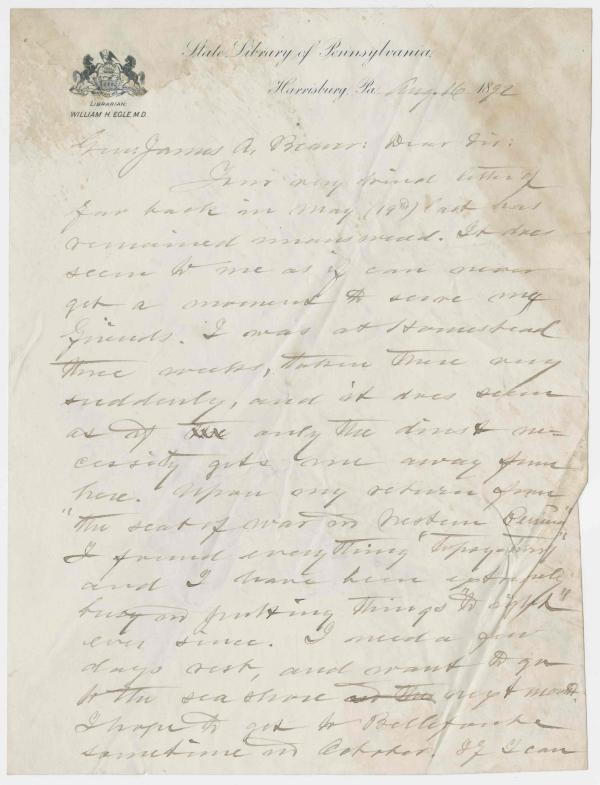 State Library of Pennsylvania,
Harrisburg, Pa. Aug. 16 1892
LIBRARIAN:
WILLIAM H. EGLE M.D.
Gen. James A. Beaver: Dear Sir:
Your very kind letter of
far back in May (19th) last has
remained unanswered. It does
seem to me as if I can never
get a moment to serve my
friends. I was at Homestead
three weeks, taken there very
suddenly, and it does seem
as if only the direst ne-
cessity gets me away from
here. Upon my return from
"the seat of war in Western Penna"
I found everything "topsy turvy"
and I have been extremely
busy in putting things "to rights"
ever since. I need a few
days rest, and want to go
to the sea shore next month.
I hope to get to Bellefonte
sometime in October. If I can